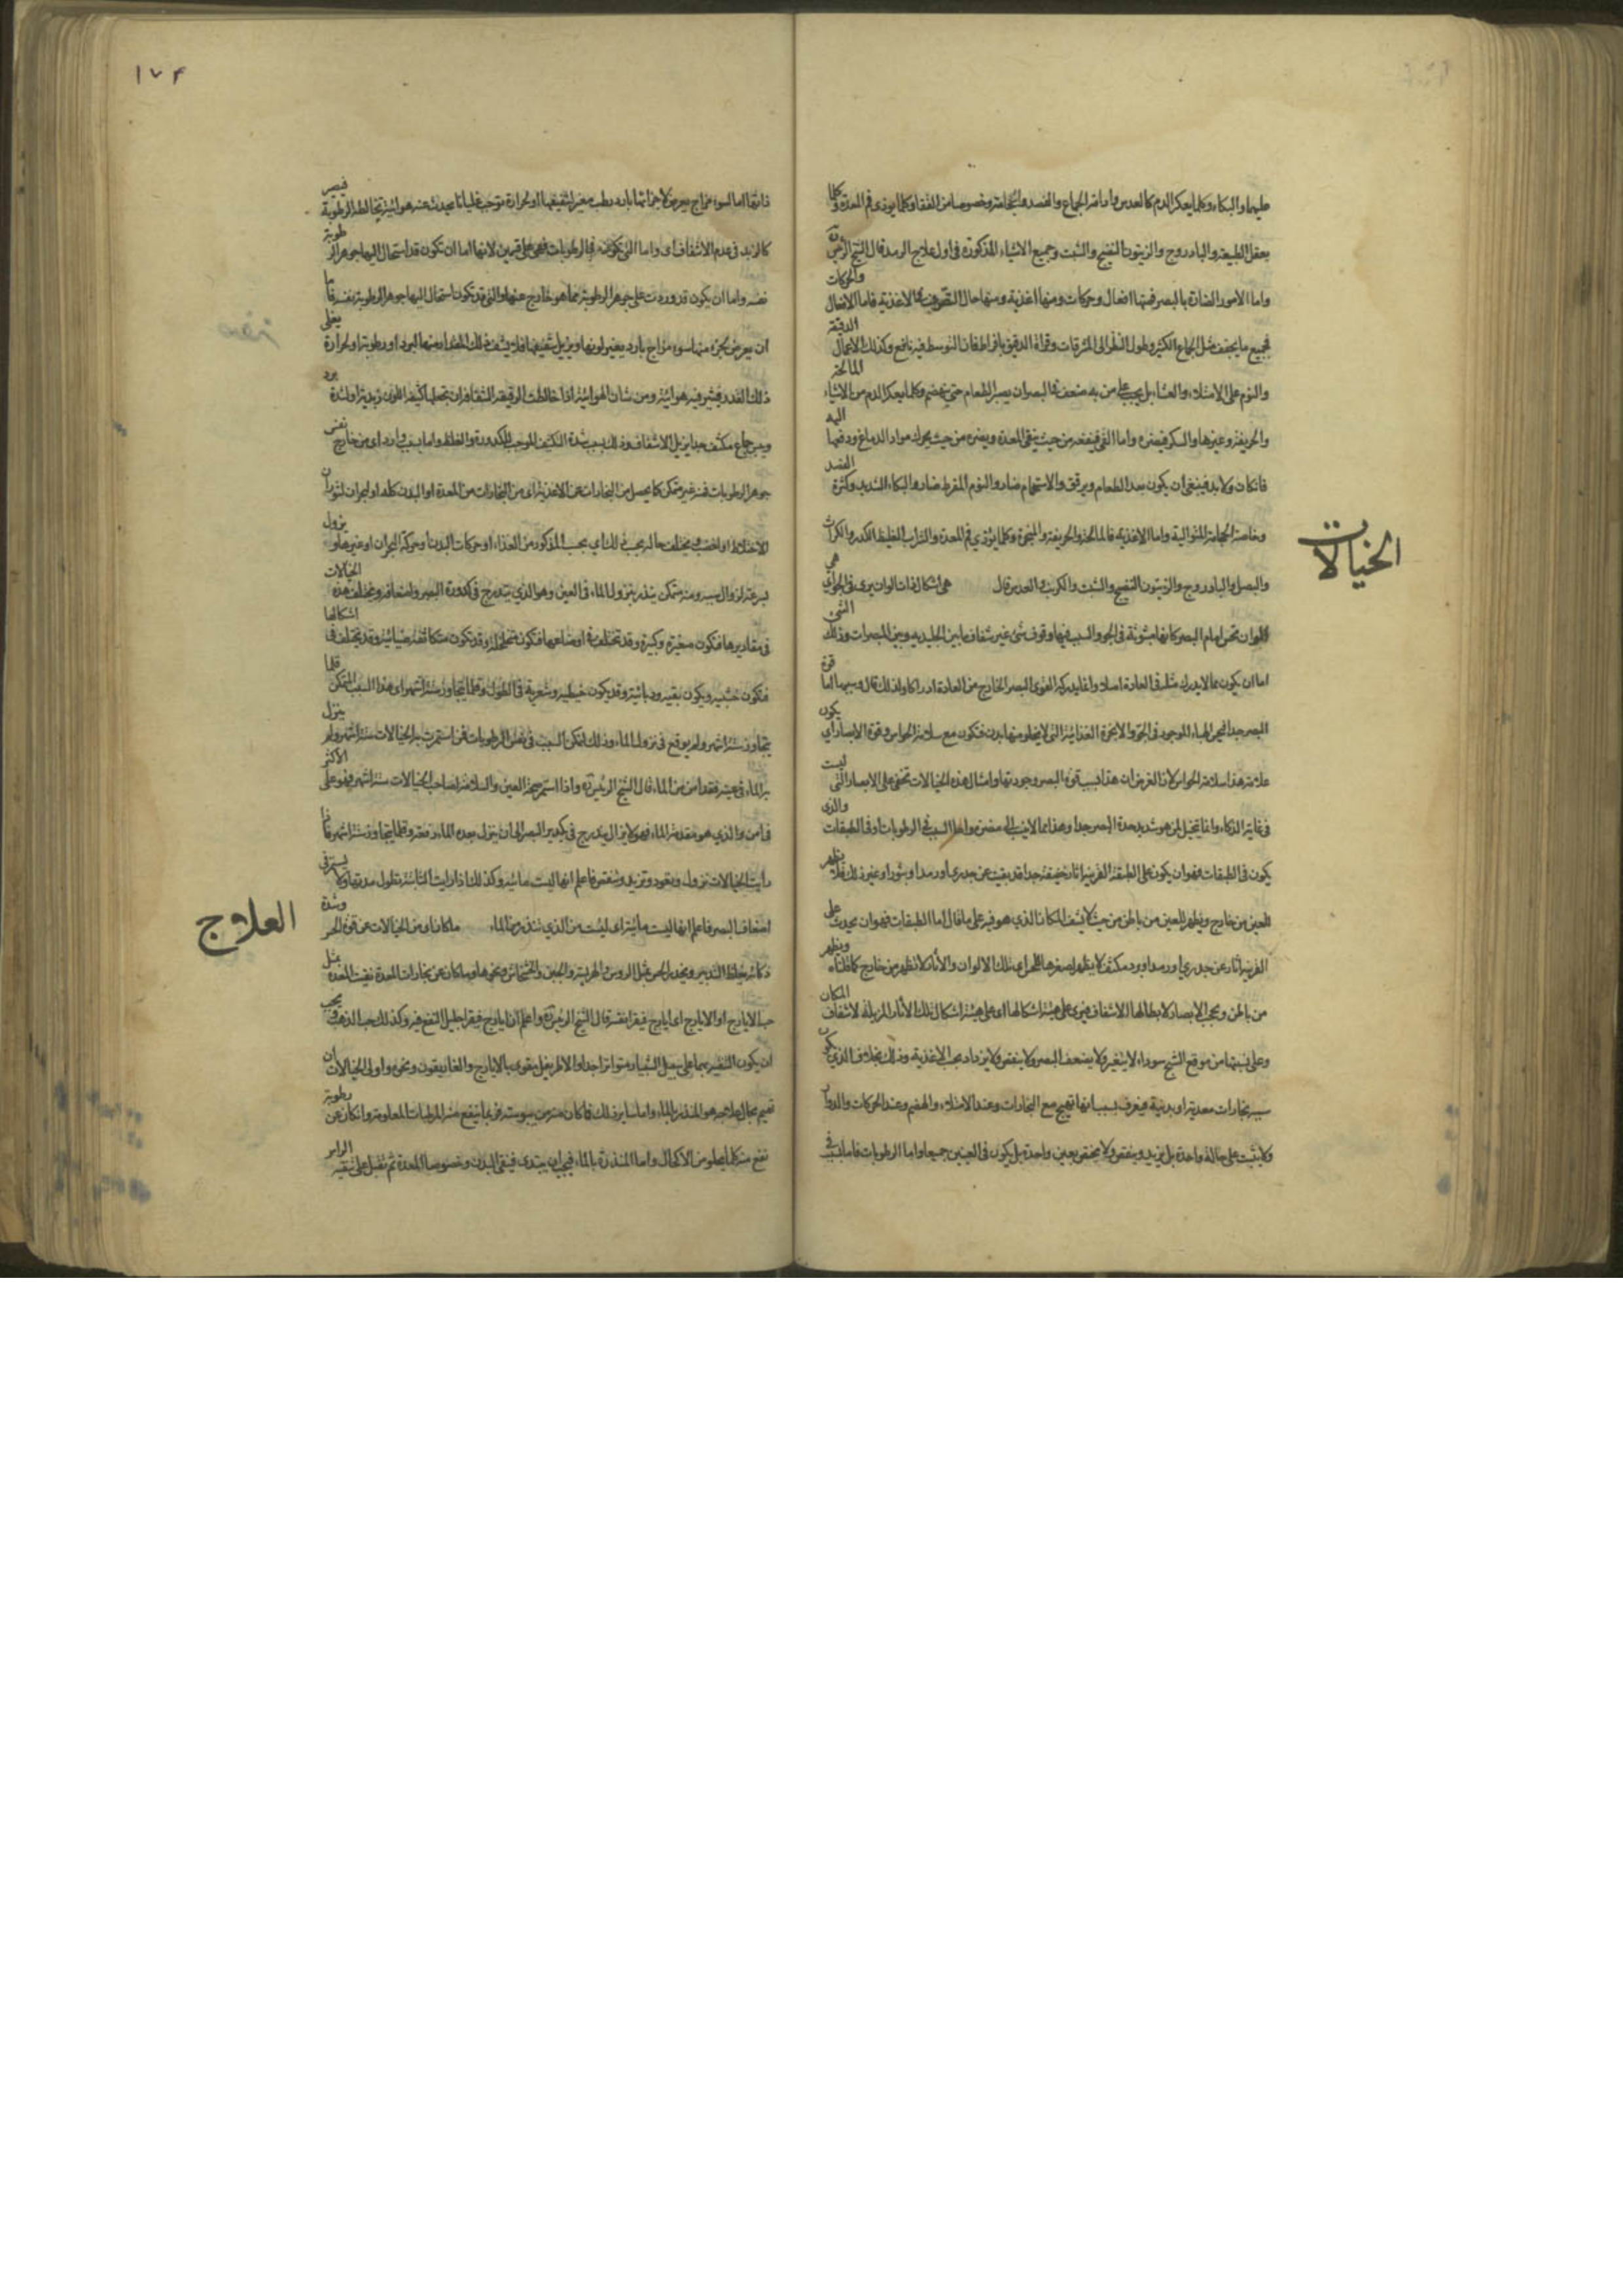 عليها والبكاء وكلما يعكر الدم كالعدس وادامة الجماع والفصد والحجامة وخصوصا من القفا وكلما يوذى فم المعدة وكلما
يعقل الطبيعة والبادروج والزيتون النضيج والشبت وجميع الاشياء المذكورة فى اول علاج الرمد قال الشيخ الرئيس
واما الامور الضارة بالبصر فمنها افعال وحركات ومنها اغذية ومنها حال التصرف فى الاغذية فاما الافعال والحركات
فجميع ما يجفف مثل الجماع الكثير وطول النظر الى المشرقات وقراءة الدقيق بافراط فان التوسط فيه نافع وكذلك الاعمال الدقيقة
والنوم على الامتلاء والعشاء بل يجب على من به ضعف فى البصر ان يصبر للطعام حتى ينهضم وكلما يعكر الدم من الاشياء المالحة
والحريفة وغيرها والسكر فيضره واما القئ فينفعه من حيث ينقى المعدة ويضره من حيث يحرك مواد الدماغ ودفعها اليه
فان كان ولا بد فينبغى ان يكون بعد الطعام وبرفق والاستحمام ضار والنوم المفرط ضار والبكاء الشديد وكثرة الفصد
وخاصة الحجامة المتوالية واما الاغذية فالمالحة والحريفة والمبخرة وكلما يؤذي فم المعدة والشراب الغليظ الكدر والكراث
والبصل والبادروج والزيتون النضيج والشبت والكرنب والعدس قال
الخيالات
هى اشكال ذات الوان يرى فى الجو اي هى
الوان تحس امام البصر كانها مبثوثة فى الجو والسبب فيها وقوف شئ غير شفاف ما بين الجليدية وبين المبصرات وذلك الشئ
اما ان يكون مما لا يدرك مثله فى العادة اصلا وانما يدركه القوى البصر الخارج من العادة ادراكا ولذلك قال وسببها اما قوة
البصر جدا فيحس الهباء الموجود فى الجو والابخرة الغذائية التى لا يخلو منها بدن فتكون مع سلامة الحواس وقوة الابصار اي يكون
علامة هذا سلامة الحواس لان الغرض ان هذا بسبب قوة البصر وجودتها وامثال هذه الخيالات تخفى على الابصار التى ليست
فى غاية الذكاء وانما يتخيل لمن هو شديد حدة البصر جدا وهذا مما لا ينسب الى مضرة واما السبب فى الرطوبات او فى الطبقات والذى
يكون فى الطبقات فهو ان يكون على الطبقة القرنية اثار خفيفة جدا قد بقيت عن جدري او رمد او بثور او غير ذلك فلا يظهر
للعين من خارج ويظهر للعين من باطن من حيث لا يشف المكان الذي هو فيه على ما قال اما الطبقات فهو ان يحدث على
القرنية اثار عن جدري او رمد او برد مكثف لا يظهر لصغرها للحس اي تلك الالوان والآثار لا تظهر من خارج كما قلناه ويظهر
من باطن ويحجب الابصار لابطالها الاشفاف فيرى على هيئة اشكالها اى على هيئة اشكال تلك الآثار المزيلة لاشفاف المكان
وعلى نسبتها من موقع الشبح سوداء لا يتغير ولا يضعف البصر ولا ينقص ولا يزداد بحسب الاغذية وذلك بخلاف الذي يكون
سببه بخارات معدية او بدنية فيعرف بسبب انها تهيج مع البخارات وعند الامتلاء والهضم وعند الحركات والدوار
ولا يثبت على حالة واحدة بل يزيد وينقص ولا يختص بعين واحدة بل يكون فى العينين جميعا واما الرطوبات فاما لسبب فى
١٧٤
ذاتها اما لسوء مزاج يعرض لاجزائها بارد رطب مغير لشفيفها او لحرارة توجب غليانا يحدث عنه هوائية تخالط الرطوبة فيصير
كالزبد فى عدم الاشفاف اى واما التى تكون فى الرطوبات فهى على قسمين لانها اما ان تكون قد استحال اليها جوهر الرطوبة
نفسه واما ان يكون قد وردت على جوهر الرطوبة مما هو خارج عنها والتى قد تكون استحال اليها جوهر الرطوبة نفسه فاما
ان يعرض لجزء منها سوء مزاج بارد يغير لونها ويزيل شفيفها فلا يشف ذلك المقدار منها البرد او رطوبة او لحرارة يغلى
ذلك القدر فيثير فيه هوائية ومن شان الهوائية اذا خالطت الرقيقة الشفافة ان تجعلها كثيفة اللون زبدية او لشدة برد
ويبس جماع مكثف جدا يزيل الاشفاف وذلك بسبب شدة التكثيف الموجب للكدورة والغلظ واما بسبب وارد اى من خارج نفس
جوهر الرطوبات فمنه غير متمكن كما يحصل من البخارات عن الاغذية اى من البخارات من المعدة او البدن كله او لبحران لثوران
الاخلاط او لغضب ويختلف حاله بحسب ذلك اي بحسب المذكور من الغذاء او حركات البدن او حركة البحران او غيرها ويزول
بسرعة لزوال سببه ومنه متمكن ينذر بنزول الماء فى العين وهو الذي يتدرج فى كدورة البصر واضعافه ويختلف هذه الخيالات
فى مقاديرها فتكون صغيرة وكبيرة وقد تختلف فى اوضاعها فتكون متخلخلة وقد تكون متكاثفة ضبابية وقد يختلف فى اشكالها
فتكون حبية ويكون بقية وذبابية وقد يكون خيطية وشعرية فى الطول وقلما يتجاوز ستة اشهر اى هذا السبب المتمكن قلما
يتجاوز ستة اشهر ولم يوقع فى نزول الماء وذلك لتمكن السبب فى نفس الرطوبات فمن استمرت به الخيالات ستة اشهر ولم ينزل
به الماء فى عينه فقد امن من الماء قال الشيخ الرئيس واذا استمر صحة العين والسلامة لصاحب الخيالات ستة اشهر فهو على الاكثر
فى امن والذي هو مقدمة الماء فهو لا يزال يتدرج فى تكدير البصر الى ان ينزل بعده الماء دفعة وقلما يتجاوز ستة اشهر فاذا
رأيت الخيالات تزول وتعود وتزيد وتنقص فاعلم انها ليست مائية وكذلك اذا رايت الثابتة تطول مدتها ولا يستمر فى
اضعاف البصر فاعلم انها ليست مائية اى ليست من الذي تنذر من الماء
العلاج
ما كان اى من الخيالات عن قوة الحس وشدة
ذكائه غلظ التدبير ويخدر الحس بمثل الروس والهريسة والجبن والخشخاش ونحوها وما كان عن بخارات المعدة نقيت المعدة بمثل
حب الايارج او الايارج اى ايارج فيقرا نفسه قال الشيخ الرئيس واعلم ان ايارج فيقرا جليل النفع فيه وكذلك حب الذهب ويجب
ان يكون التنقية بهما على سبيل الشبيار متواترا جدا والاطريفل يقوى بالايارج والغاريقون ونحوه واولى الخيالات ان
تهتم بحال علاجه هو المنذر بالماء واما سائر ذلك فما كان منه من يبوسة فربما ينفع منه المرطبات المعلومة وان كان عن رطوبة
نفع منه كلما يجلو من الاكحال واما المنذرة بالماء فيجب ان يبتدى فينقى البدن وخصوصا المعدة ثم تقبل على تنقية الراس